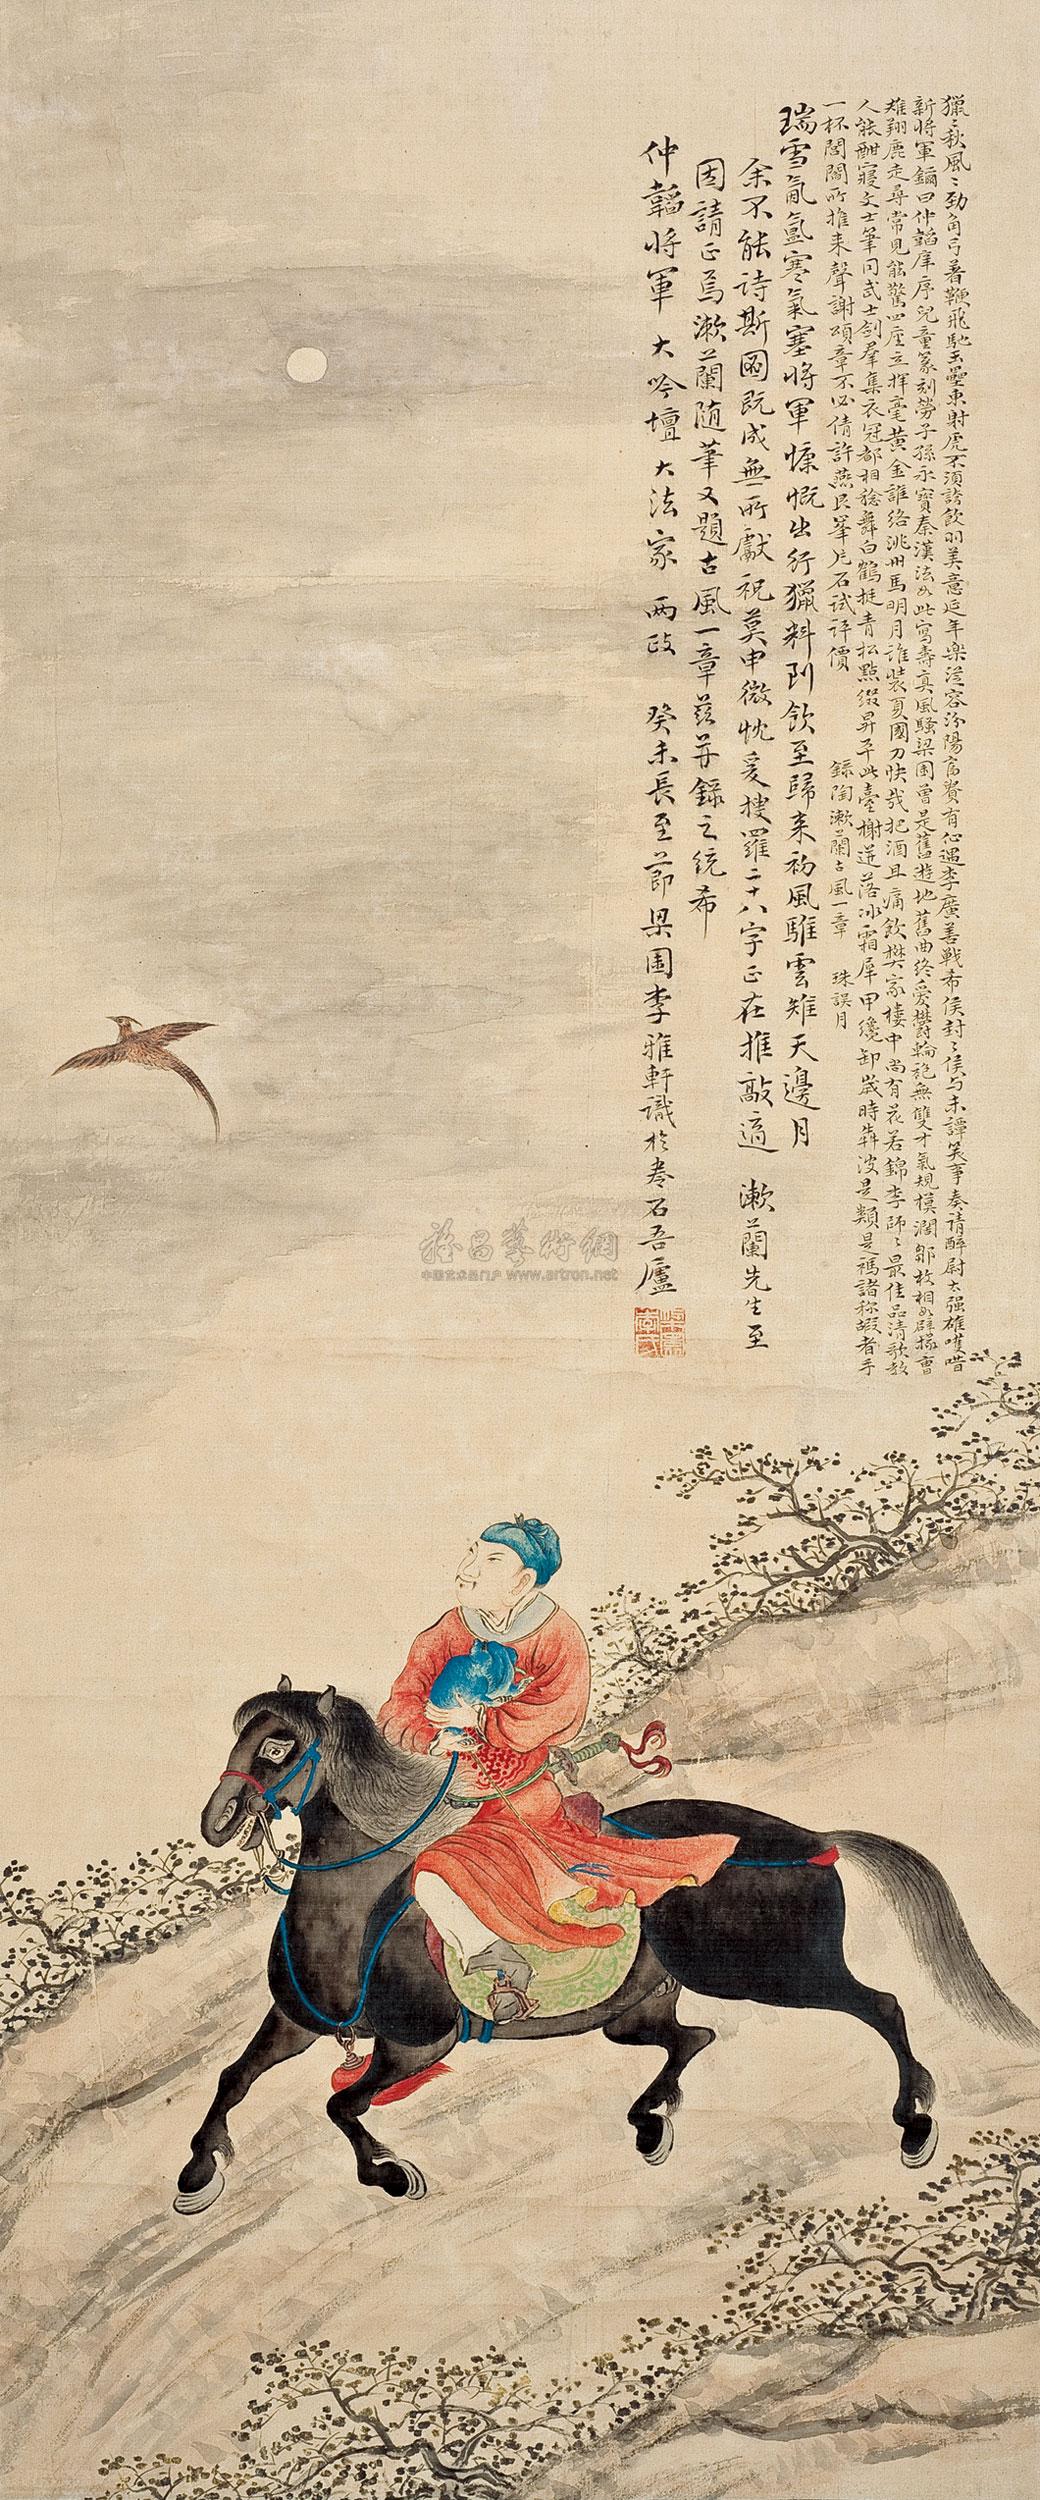 獵〻秋風〻劲角弓著鞭飛馳玉壘東射虎不須誇飲羽美意延年樂從容汾陽富貴有心遇李廣善戰希侯封〻侯与未譚笑事奏請醉尉太强雄嘆昔
新將軍鎦曰仲韜庠序兒童篆刻勞子孫永寳秦漢法如此寫壽真風騷梁園曾是舊遊地舊曲終爰欝輪袍無雙才氣規模濶鄒枚相如辟掾曹
雉翔鹿走尋常見能驚四座立揮毫黄金誰絡洮州馬明月誰裝夏國刀快哉把酒且痛飲樊家樓中尚有花若錦李師〻最佳品清歌教
人能酣寢文士筆同武士劍羣集衣冠都相稔舞白鶴挺青松點綴昇平此臺榭迸落冰霜犀甲纔卸歲時犇波是類是禡諸称嘏者手
一杯閶闔所推来聲謝頌章不必倩許燕民峯片石試评價
錄陶漱蘭古風一章 珠誤月
瑞雪氤氳寒氣塞將軍慷慨出行獵料到飲至歸来初風騅雲雉天邊月
余不能诗斯圖既成無所獻祝莫申微忱爰搜羅二十八字正在推敲適 漱蘭先生至
因請正焉漱蘭随筆又題古風一章茲并錄之统希
仲韜將軍 大吟壇 大法家 两政 癸未長至節梁園李雅軒識於耄石吾廬
雅昌藝術網
中国艺术品门户 www.artron.net